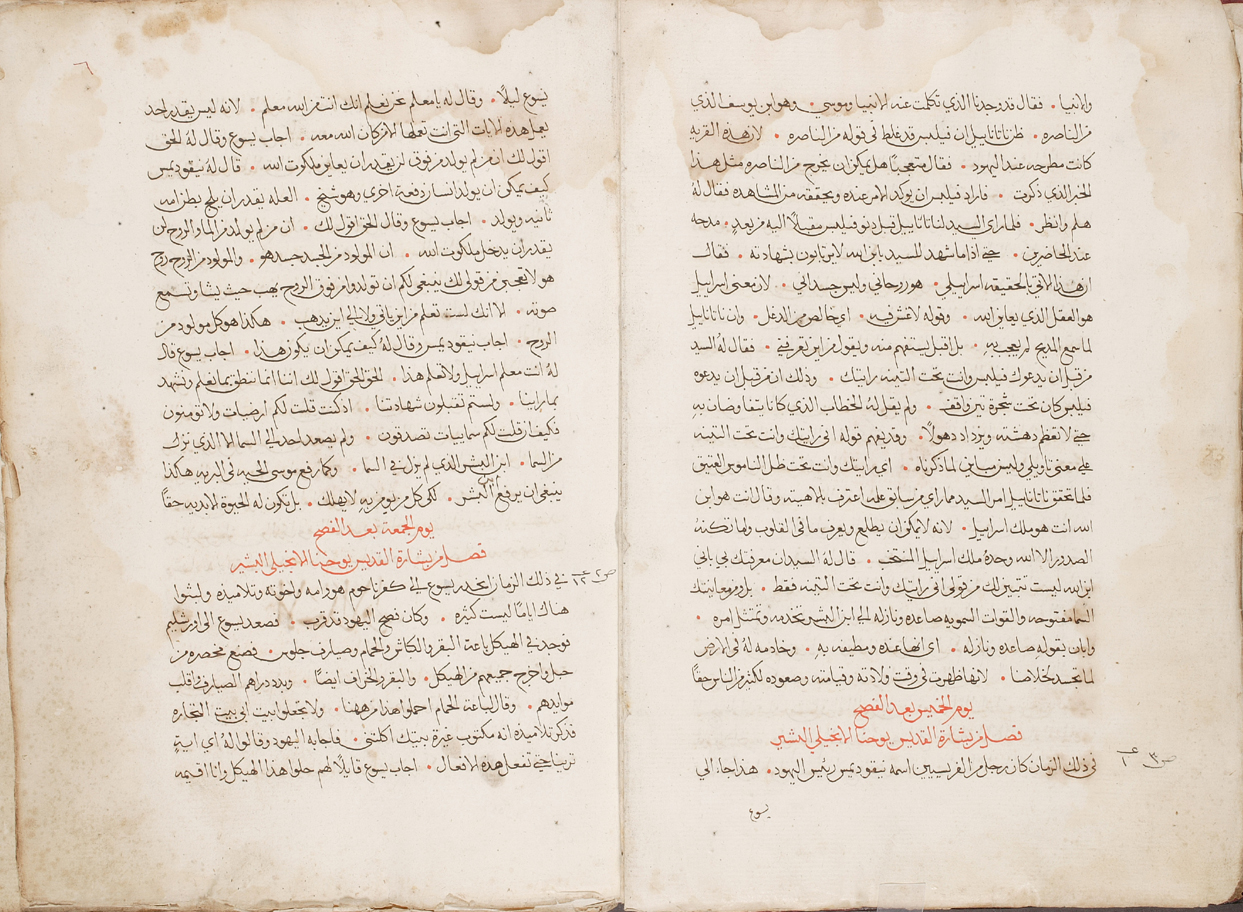 والانبيا • فقال قد وجدنا الذي تكلمت عنه الانبيا وموسي • وهو ابن يوسف الذي
من الناصره • ظن ناتانايل ان فيلبس قد غلط في قوله من الناصره • لان هذه القريه
كانت مطرحه عند اليهود • فقال متعجبًا هل يمكن ان يخرج من الناصره مثل هذا
الخبر الذي ذكرت • فاراد فيلبس ان يوكد الامر عنده ويحققه من المشاهده فقال له
هلم وانظر • فلما راي السيد لناتانايل قبل دنو فيلبس مقبلًا اليه من بعيدٍ • مدحه
عند الحاضرين • حتي اذا ما شهد للسيد بابن الله لا يرتابون بشهادته • فقال
ان هذا الاتي بالحقيقه اسراييلي • هو روحاني وليس جسداني • لان معني اسراييل
هو العقل الذي يعاين الله • وقوله لا غش فيه • اي خالص من الدغل • وان ناتانايل
لما سمع المديح لم يعجب بهِ • بل اقبل يستفهم منه ويقول من اين تعرفني • فقال له السيد
من قبل ان يدعوك فيلبس وانت تحت التينه رايتك • وذلك ان من قبل ان يدعوه
فيلبس كان تحت شجرة تين واقف • ولم يقل له الخطاب الذي كانا يتفاوضان بهِ
حتي لا تعظم دهشته ويزداد دهولًا • وقد يفهم قوله اني رايتك وانت تحت التينه
علي معني تاويلي وليس مباين لما ذكرناه • اي رايتك وانت تحت ظل الناموس العتيق
فلما تحقق ناتانايل امر السيد مما راي من سابق علمه اعترف بالاهيته وقال انت هو ابن
الله انت هو ملك اسراييل • لانه لا يمكن ان يطلع ويعرف ما في القلوب ولما تكنه
الصدور الا الله وحده ملك اسراييل المنتخب • قال له السيد ان معرفتك بي باني
ابن الله ليست تتميز لك من قولي اني رايتك وانت تحت التينه فقط • بل ومن معاينتك
السما مفتوحه والقوات السمويه صاعده ونازله الي ابن البشر تخدمه وتمتثل امره •
وابان بقوله صاعده ونازله • اي انها عنده ومطيفه بهِ • وخادمه له في الارض
لما تجسد لخلاصنا • لانها ظهرت في وقت ولادته وقيامته وصعوده لكثير من الناس حقًا
يوم الخميس بعد الفصح
فصل من بشارة القديس يوحنا الانجيلي البشير
في ذلك الزمان كان رجل من الفريسيين اسمه نيقوديمس رييس اليهود • هذا جا الي
ص ٣ ع ١
يسوع
٦
يسوع ليلًا • وقال له يا معلم نحن نعلم انك انت من الله معلم • لانه ليس يقدر احد
يعمل هذه الايات التي انت تعملها الا من كان الله معه • اجاب يسوع وقال له الحق
اقول لك ان من لم يولد من فوق لن يقدر ان يعاين ملكوت الله • قال له نيقوديمس
كيف يمكن ان يولد انسان دفعة اخري وهو شيخ • العله يقدر ان يلج بطن امه
ثانيه ويولد • اجاب يسوع وقال الحق اقول لك • ان من لم يولد من الما والروح لن
يقدر ان يدخل ملكوت الله • ان المولود من الجسد جسد هو • والمولود من الروح روح
هو لا تعجبن من قولي لك ينبغي لكم ان تولدوا من فوق الروح يهب حيث يشا وتسمع
صوته • الا انك لست تعلم من اين ياتي ولا الي اين يذهب • هكذا هو كل مولود من
الروح • اجاب نيقوديمس وقال له كيف يمكن ان يكون هذا • اجاب يسوع قال
لهُ انت معلم اسراييل ولا تعلم هذا • الحق الحق اقول لك اننا انما ننطق بما نعلم ونشهد
بما راينا • ولستم تقبلون شهادتنا • اذ كنت قلت لكم ارضيات ولا تومنون
فكيف ان قلت لكم سماييات تصدقون • ولم يصعد احد الي السما الا الذي نزل
من السما • ابن البشر الذي لم يزل في السما • وكما رفع موسي الحيه في البريه هكذا
ينبغي ان يرفع ابن البشر • لكي كل من يومن بهِ لا يهلك • بل تكون له الحيوة الابديه حقًا
يوم الجمعة بعد الفصح
فصل من بشارة القديس يوحنا الانجيلي البشير
ص ٢ ع ١٢
في ذلك الزمان انحدر يسوع الي كفرناحوم هو وامه واخوته وتلاميذه ولبثوا
هناك ايامًا ليست كثيره • وكان فصح اليهود قد قرب • فصعد يسوع الي اورشليم
فوجد في الهيكل باعة البقر والكباش والحمام وصيارف جلوس • فصنع مخصره من
حبل واخرج جميعهم من الهيكل • والبقر والخراف ايضًا • وبدد دراهم الصيارف وقلب
موايدهم • وقال لباعة الحمام احملوا هذا من ههنا • ولا تجعلوا بيت ابي بيت التجاره
فذكر تلاميذه انه مكتوب غيرة بيتك اكلتني • فاجابه اليهود وقالوا له اي ايةٍ
ترينا حتي تفعل هذه الافعال • اجاب يسوع قايلًا لهم حلوا هذا الهيكل وانا اقيمه